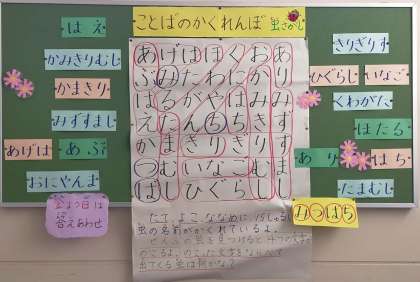 ことばのかくれんぼ 虫さがし
はえ
かみきりむし
かまきり
みずすまし
あげは
あぶ
おにやんま
金よう日は
答えあわせ
あげはほくおあ
ぶみたわにかり
はるがやはみみ
えたんちちきず
かまきりきりす
つむいなごむま
ばしひぐらしし
たて、よこ、ななめに、15しゅるい
虫の名前がかくれているよ。
ぜんぶの虫を見つけると、4つの文字が
のこるよ。のこった文字をならべて
出てくる虫は何かな?
きりぎりす
ひぐらし
いなご
くわがた
ほたる
あり
はち
たまむし
みつばち